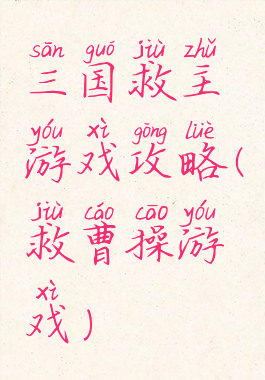 sān guó jiù zhǔ
三国救主
yóu xì gōng lüè
游戏攻略(
jiù cáo cāo yóu
救曹操游
xì
戏)